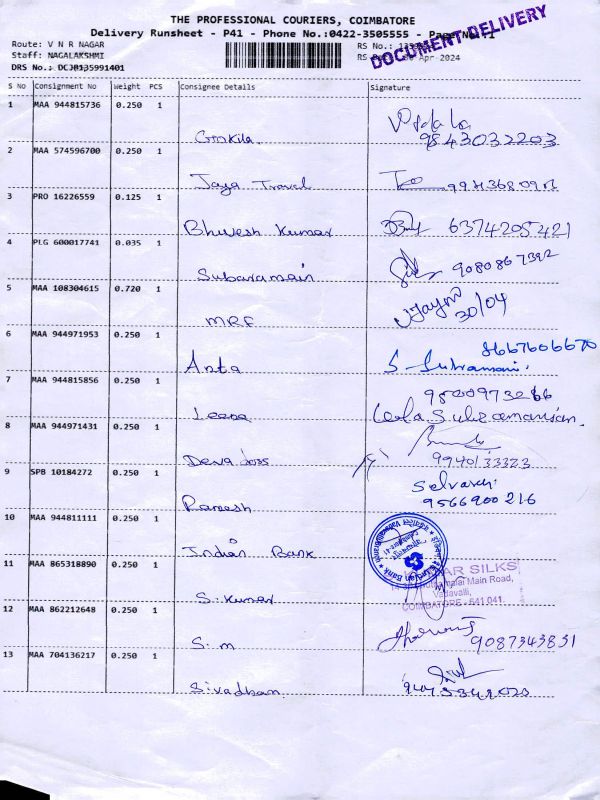 THE PROFESSIONAL COURIERS, COIMBATORE
Delivery Runsheet - P41 - Phone No.:0422-3505555 - Page No.:1
DOCUMENT DELIVERY
Route: V N R NAGAR
Staff: NAGALAKSHMI
DRS No.: DCJR135991401
RS No.:
Apr-2024
S No Consignment No Weight PCS Consignee Details Signature
1 MAA 944815736 0.250 1 Gokila
9843032203
2 MAA 574596700 0.250 1 Jaya Travel
3 PRO 16226559 0.125 1 Bhuvesh Kumar 6374205421
4 PLG 600017741 0.035 1 Subaramain 9080867392
5 MAA 108304615 0.720 1 MRF
30/04
6 MAA 944971953 0.250 1 Anta 8667606670
7 MAA 944815856 0.250 1 Leena
8 MAA 944971431 0.250 1 Deva doss
9940133323
9 SPB 10184272 0.250 1 Ramesh
9566900216
10 MAA 944811111 0.250 1 Indian Bank
Indian Bank
11 MAA 865318890 0.250 1 S. Kumar
SILKS
Main Road,
Vadavalli,
COIMBATORE - 641 041.
12 MAA 862212648 0.250 1 S. m 9087343831
13 MAA 704136217 0.250 1 Sivadhan